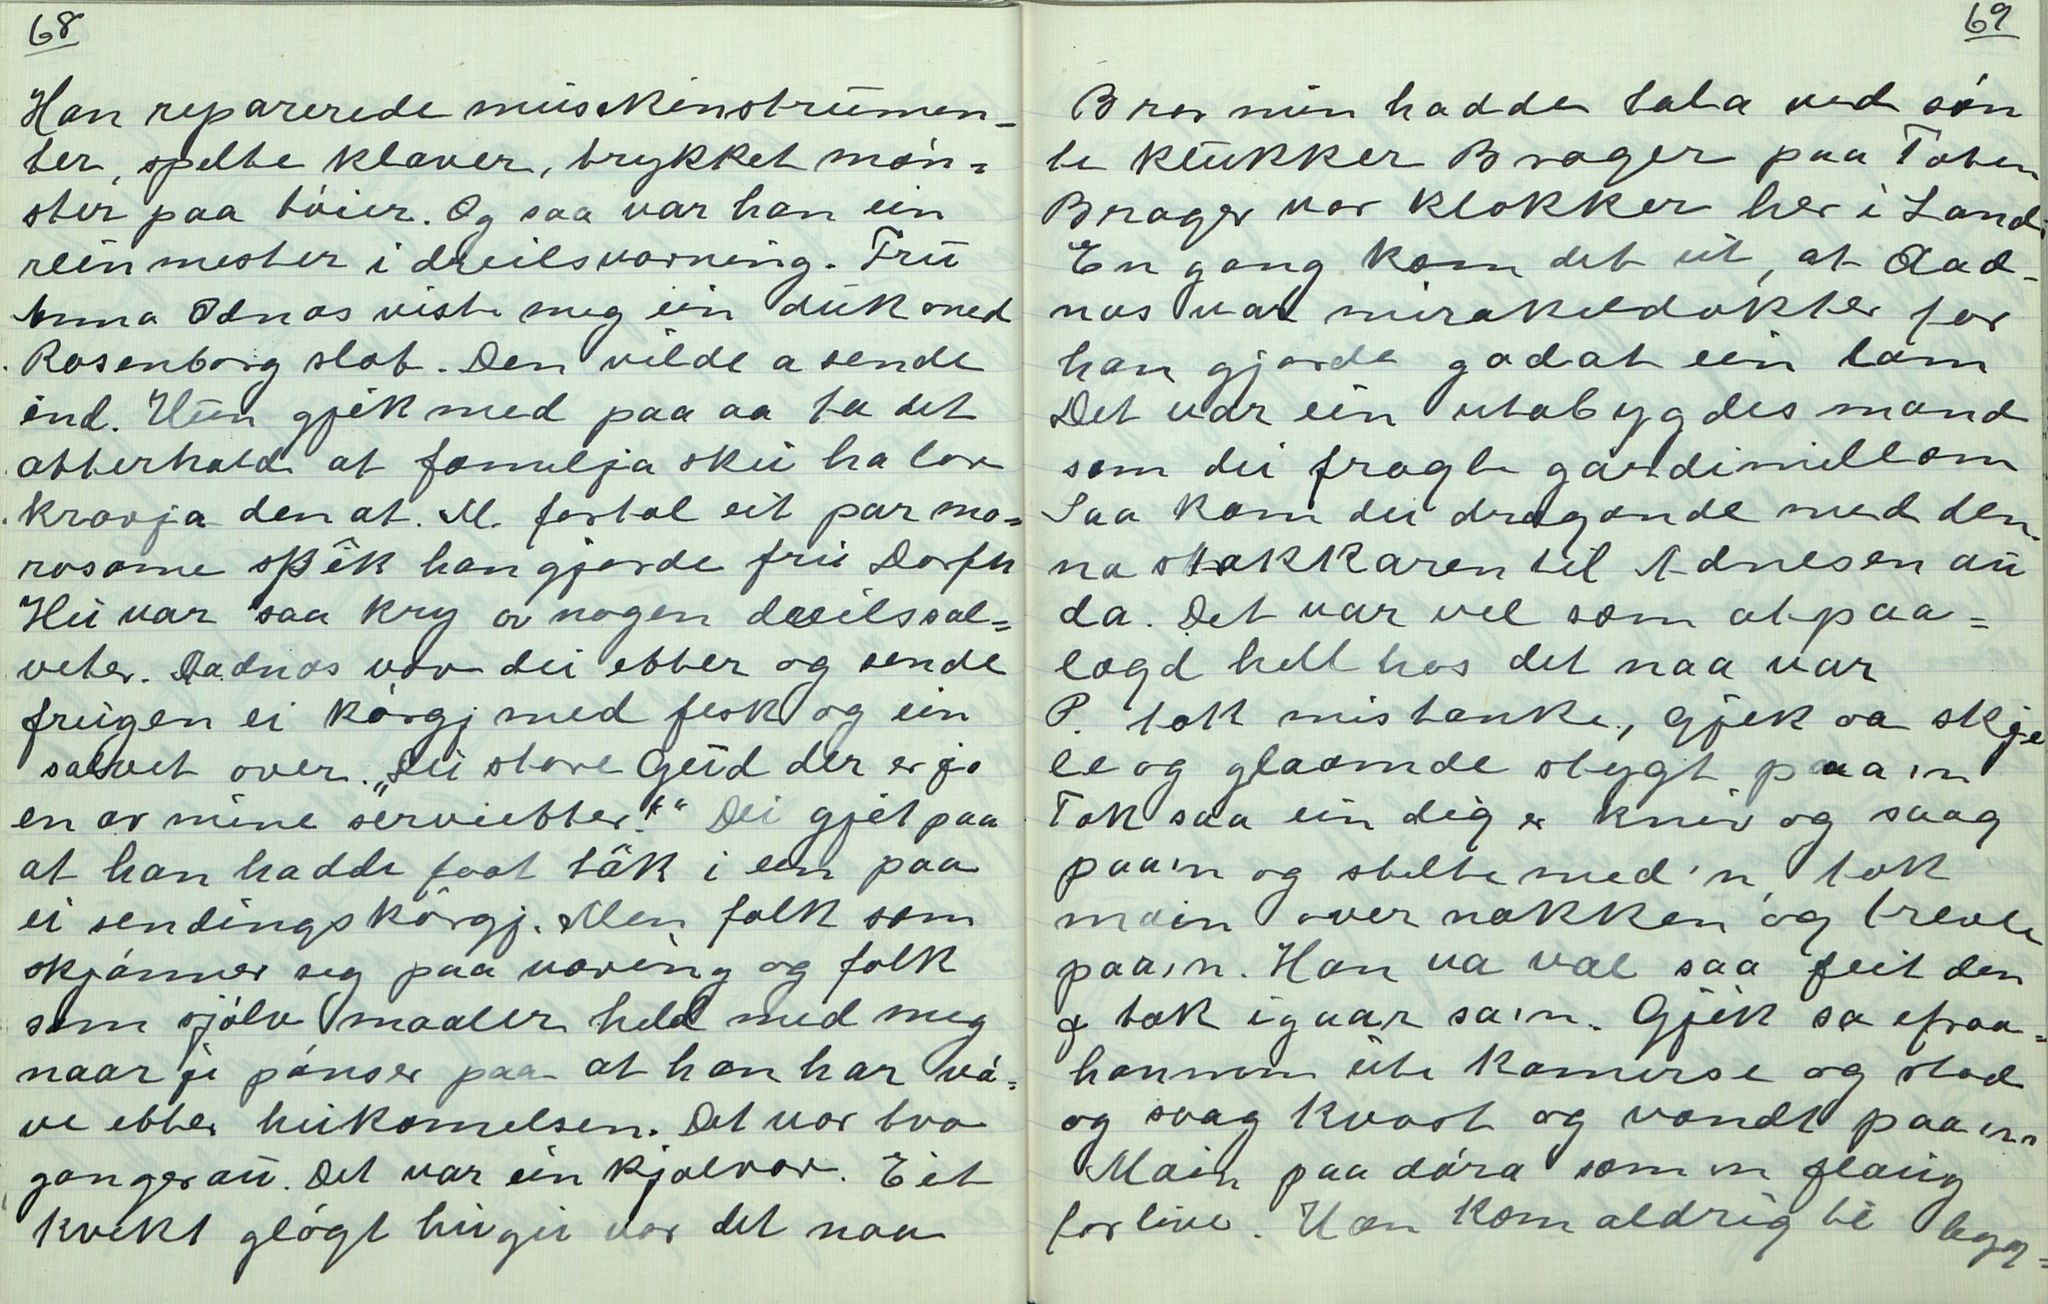 68
Han reparerede musikinstrumen=
ter, spelte klaver, trykket møn=
ster paa tøier. Og saa var han ein
rein mester i dreilsvævning. Fru
Anna Odnæs viste meg ein duk med
Rosenborg slot. Den vilde a sende
ind. Hun gjek med paa aa ta det
atterhald at familja sku ha lov
krævja den at. M. fortal eit par mo=
rosame spik han gjorde fru Dorph
Hu var saa kry av nogen dreilssal=
veter. Aadnæs vov dei etter og sende
fruigen ei kørgj med fesk og ein
salvet over. „Du store Gud der er jo
en av mine servietter!“ Dei gjet paa
at han hadde faat tak i ein paa
ei sendingskørgj. Men folk som
skjønner seg paa væving og folk
som sjølv maaler held med meg
naar je pønser paa at han har væ=
ve etter hukomelsen. Det var tva
ganger au. Det var ein kjolvov. Eit
kvikt gløgt hugu var det naa
69
Bror min hadde tala ved søn
te klukker Brager paa Toten
Brager var klokker her i Land.
En gang kom det ut, at Aad=
næs var mirakeldokter for
han gjorde godat ein lam
Det var ein utabygdes mand
som dei fragte gardimillom
Saa kom dei dragande med den
na stakkaren til Adnesen au
da. Det var vel som at paa=
lægd hell hos det naa var
P. tok mistanke, gjek aa skje
le og glaamde stygt paa'n
Tok saa ein diger kniv og saag
paa'n og stelte med'n, tok
mæin over nakken og trevle
paa'n. Han va væl saa feit den
je tok igaar sa'n. Gjek sa ifraa=
hannom ute kamerse og stod
og svag kvast og vondt paa'n
Mæin paa døra som'n flaug
for live. Han kom aldrig te byg=